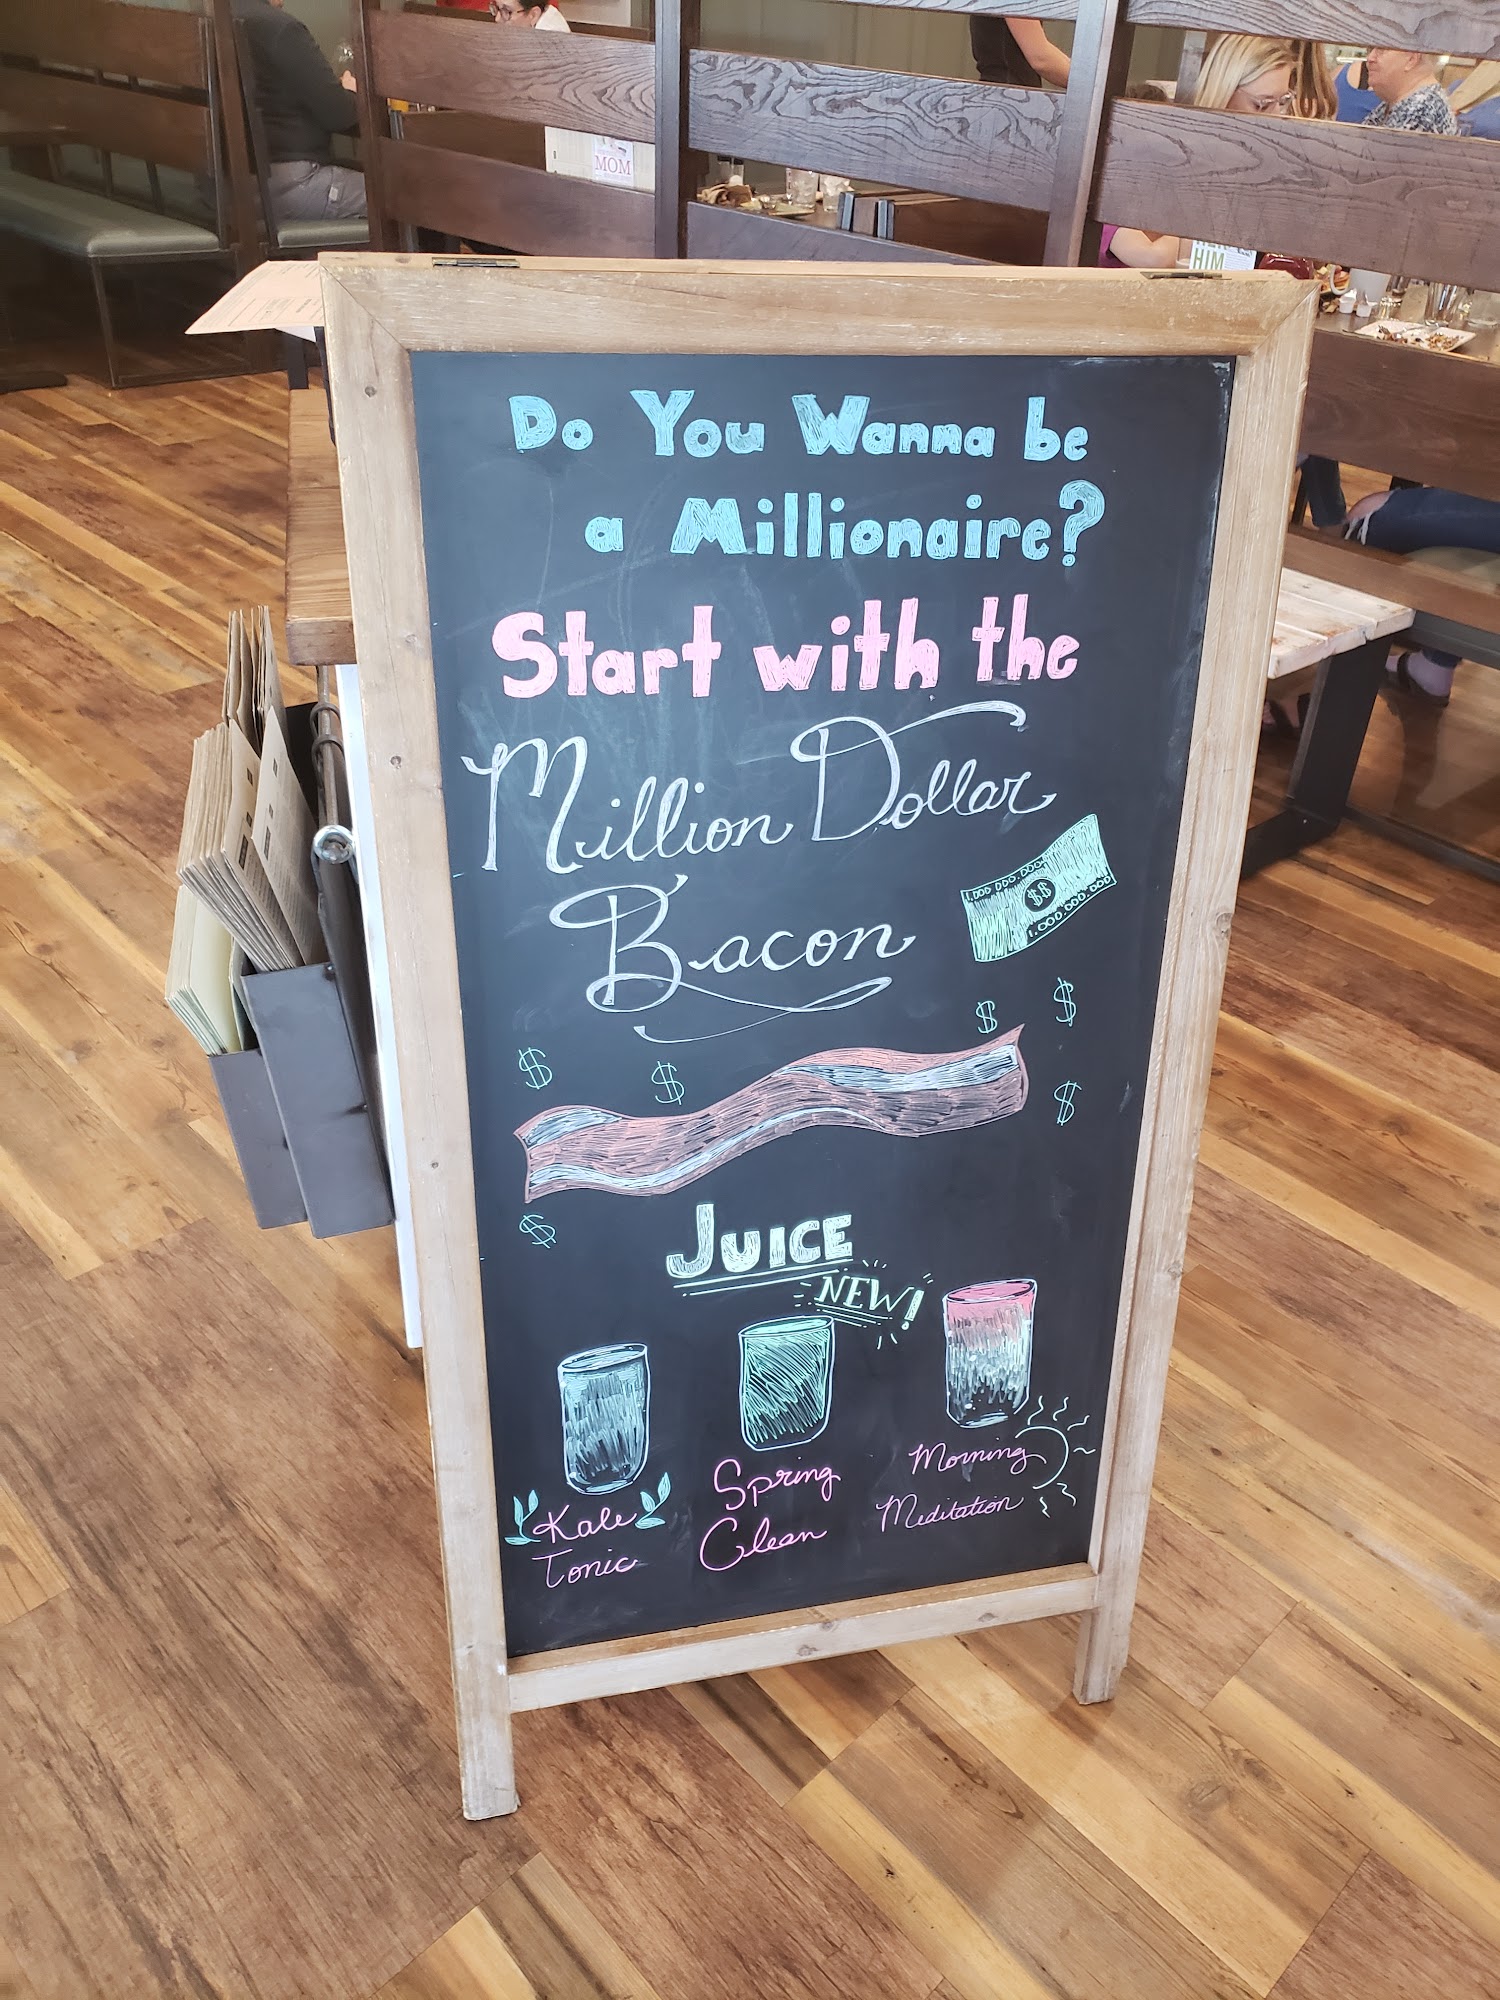 MOM
HIM
Do You Wanna be
a Millionaire?
Start with the
Million Dollar
Bacon
1.000.000.000
$$
1.000.000.000
$
$
$
$
$
$
JUICE
NEW!
Kale
Tonic
Spring
Clean
Morning
Meditation